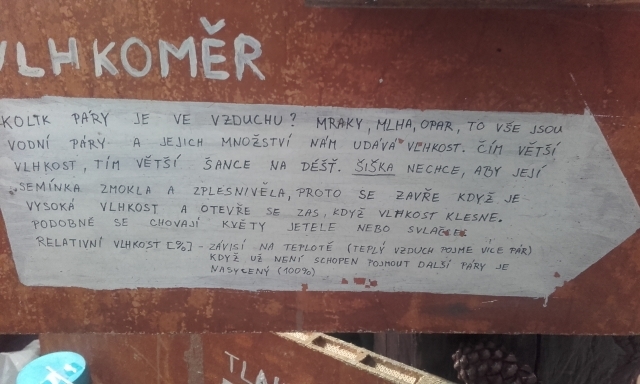 VLHKOMĚR
KOLIK PÁRY JE VE VZDUCHU? MRAKY, MLHA, OPAR, TO VŠE JSOU
VODNÍ PÁRY A JEJICH MNOŽSTVÍ NÁM UDÁVÁ VLHKOST. ČÍM VĚTŠÍ
VLHKOST, TÍM VĚTŠÍ ŠANCE NA DÉŠŤ. ŠIŠKA NECHCE, ABY JEJÍ
SEMÍNKA ZMOKLA A ZPLESNIVĚLA, PROTO SE ZAVŘE KDYŽ JE
VYSOKÁ VLHKOST A OTEVŘE SE ZAS, KDYŽ VLHKOST KLESNE.
PODOBNĚ SE CHOVAJÍ KVĚTY JETELE NEBO
RELATIVNÍ VLHKOST [%] - ZÁVISÍ NA TEPLOTĚ (TEPLÝ VZDUCH POJME VÍCE PÁR)
KDYŽ UŽ NENÍ SCHOPEN POJMOUT DALŠÍ PÁRY JE
NASYCENÝ (100%)
TLA